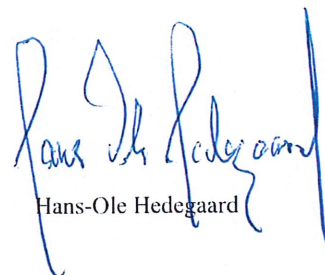 Hans Ole Hedegaard
Hans-Ole Hedegaard